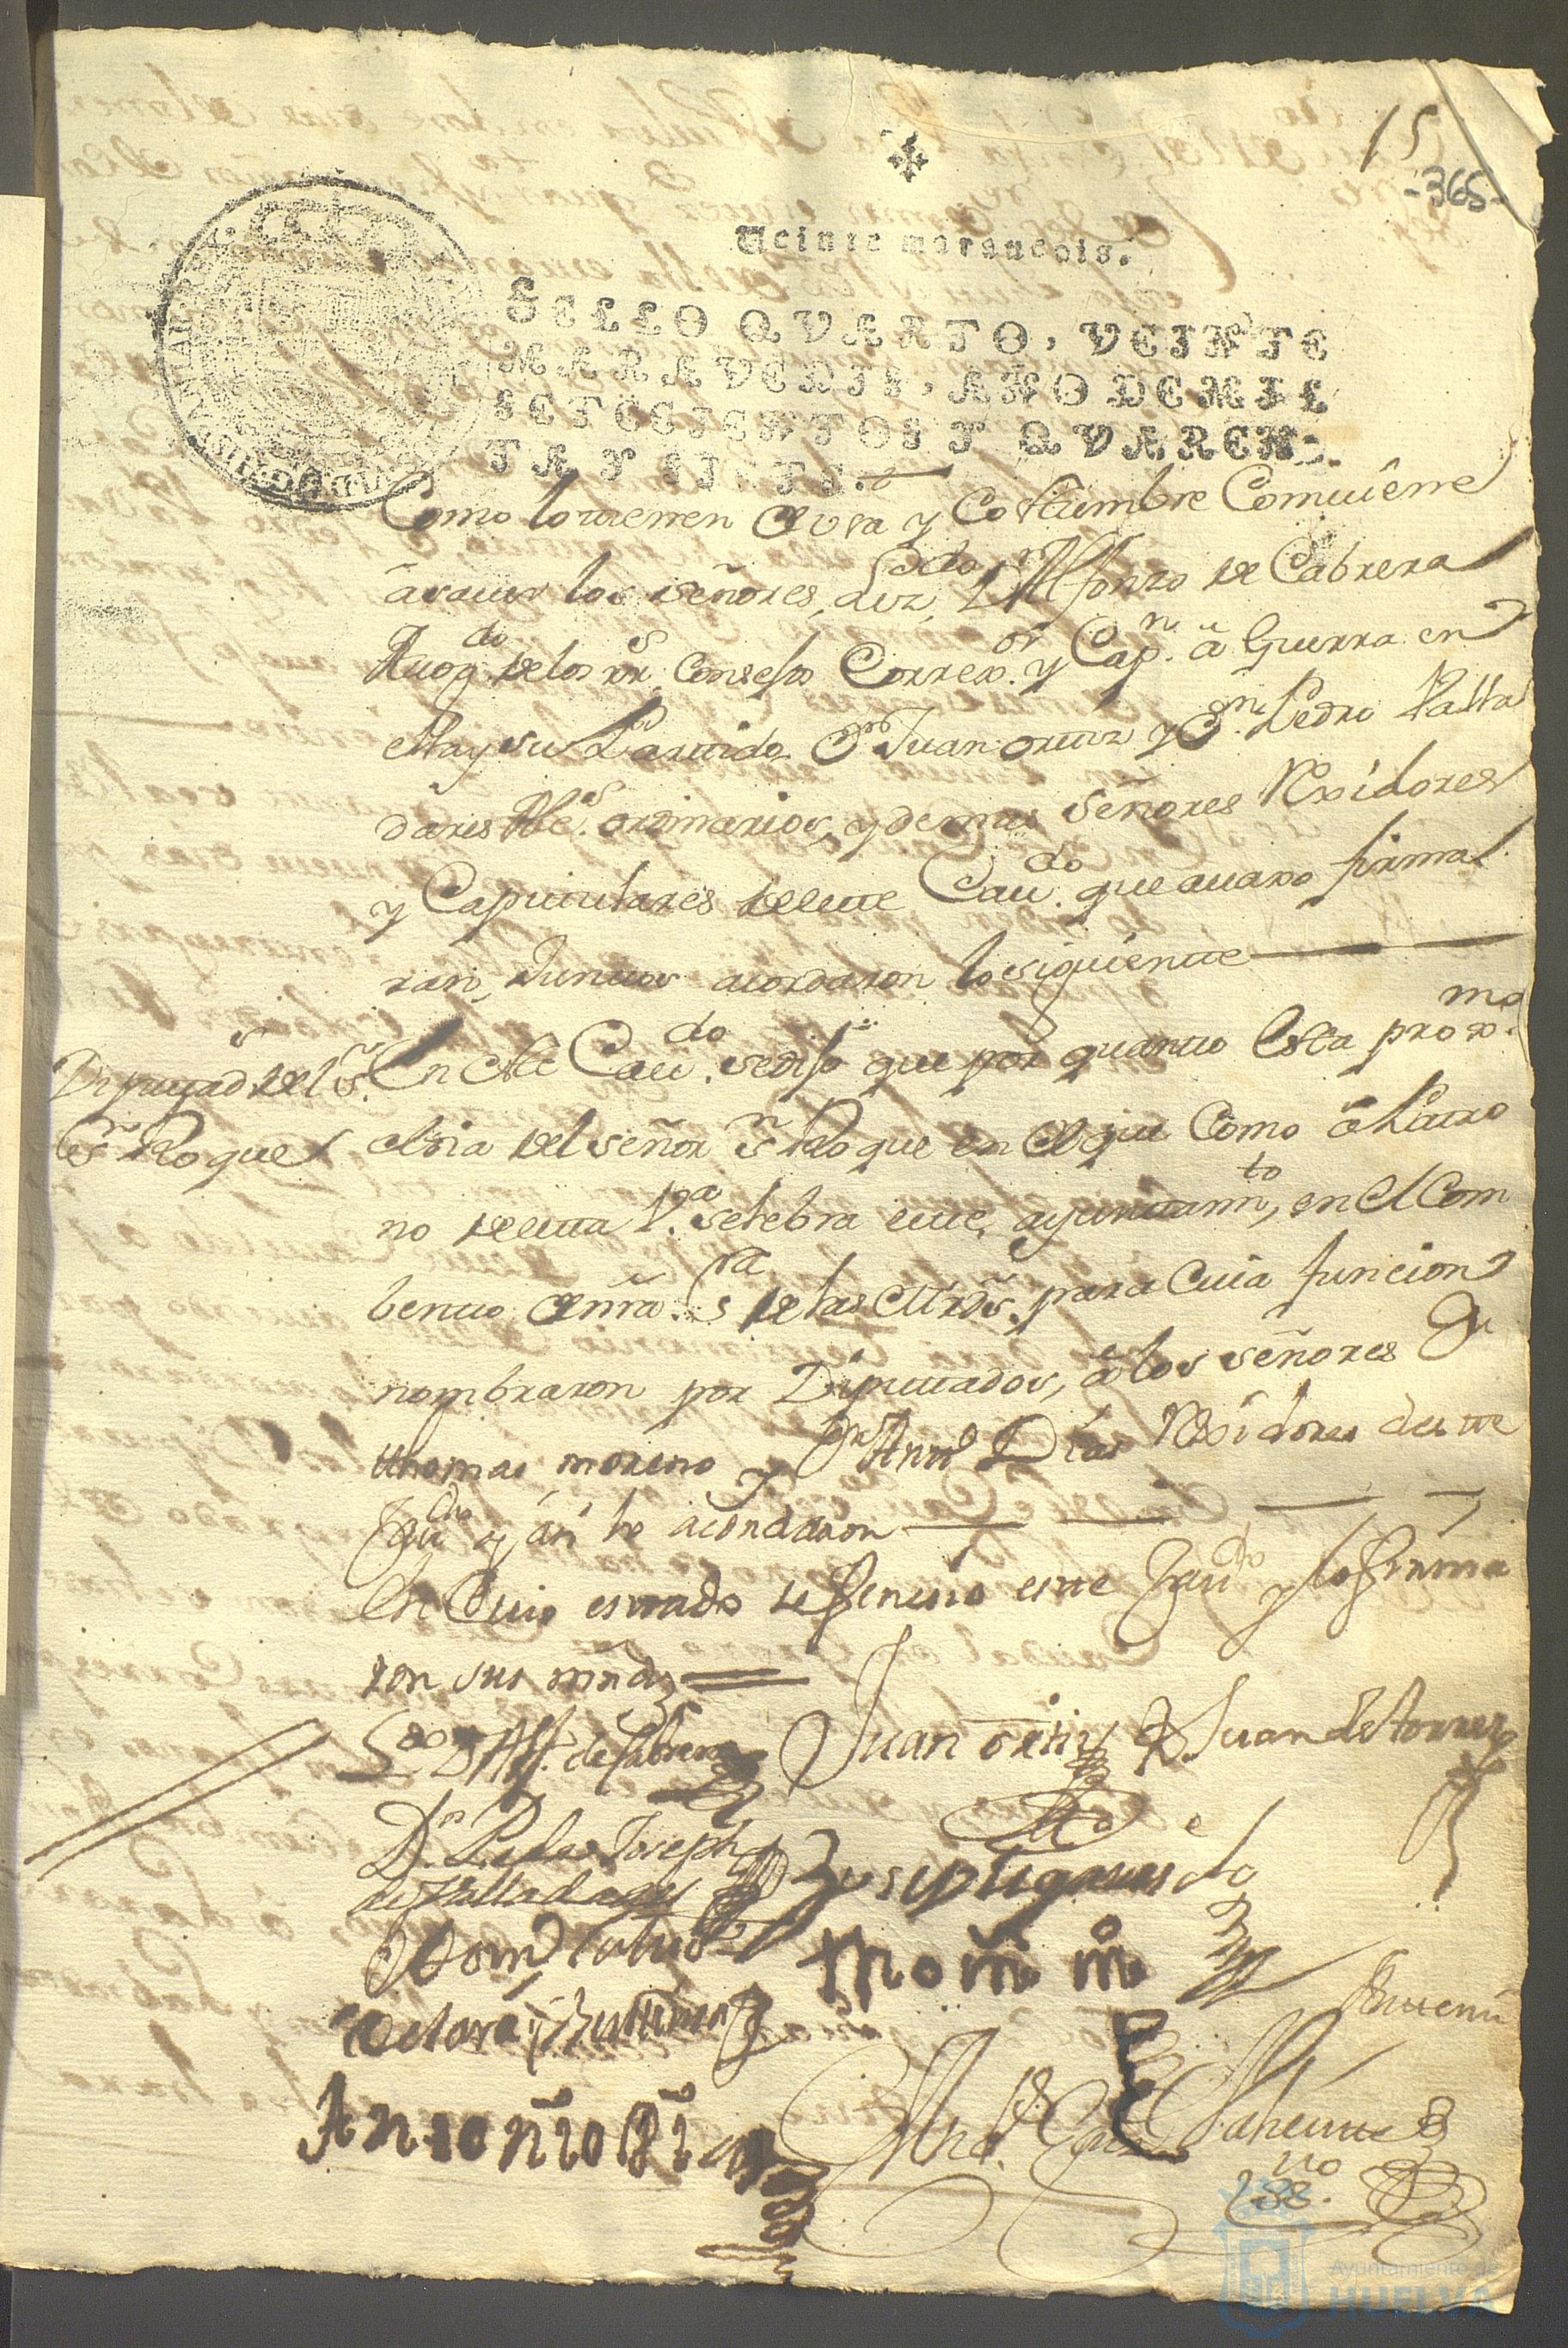 15
-365-
Veinte marauedis.
SELLO QVARTO, VEINTE
MARAVEDIS, AÑO DE MIL
SETECIENTOS Y QVAREN-
TA Y SIETE.
Como lo tienen de uso y Costumbre Comuiene
â sauer los señores Lizdo Dn Alfonso de Cabrera
Auogdo de los Rs Consejos Correxor y Capn â Guerra en
esta y su Partido Dn Juan ortiz y Dn Pedro Valla
dares Alces ordinarios, y demas señores Rexidores
y Capitulares de este Caudo que auaxo firma
ran, Juntos acordaron lo siguiente
Diputados del Sr
Sn Roque
En este Caudo se dijo que por quanto esta proxmo
el dia del señor Sn Roque en el que Como â Patro
no de esta Va selebra este ayuntamto, en el Com
bento de nra Sra de las Mrds. para Cuia funcion
nombraron por Diputados, â los señores Dn
thomas moreno y Dn Antto Dias Rexidores deste
Caudo y asi lo acordaron
En Cuio estado se fenesio este Caudo y lo firma
ron sus mrdz
Lzdo Dn Alf. de Cabrera
Juan ortiz
D. Juan de torres
Dn Pedro Joseph
de Valladares
thoms mo
Antonio Dias
Antemi
esno.
Ayuntamiento de
HUELVA